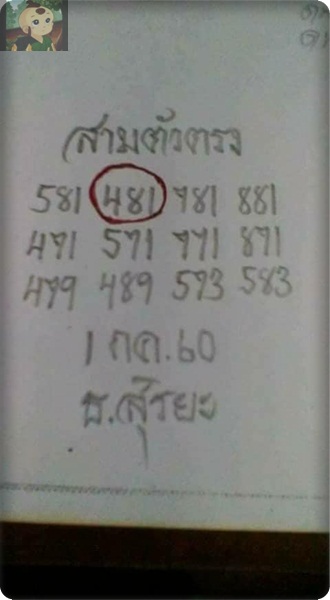 สามตัวตรง
581 481 781 881
471 571 771 871
479 489 573 583
1 กค.60
ธ.สุริยะ